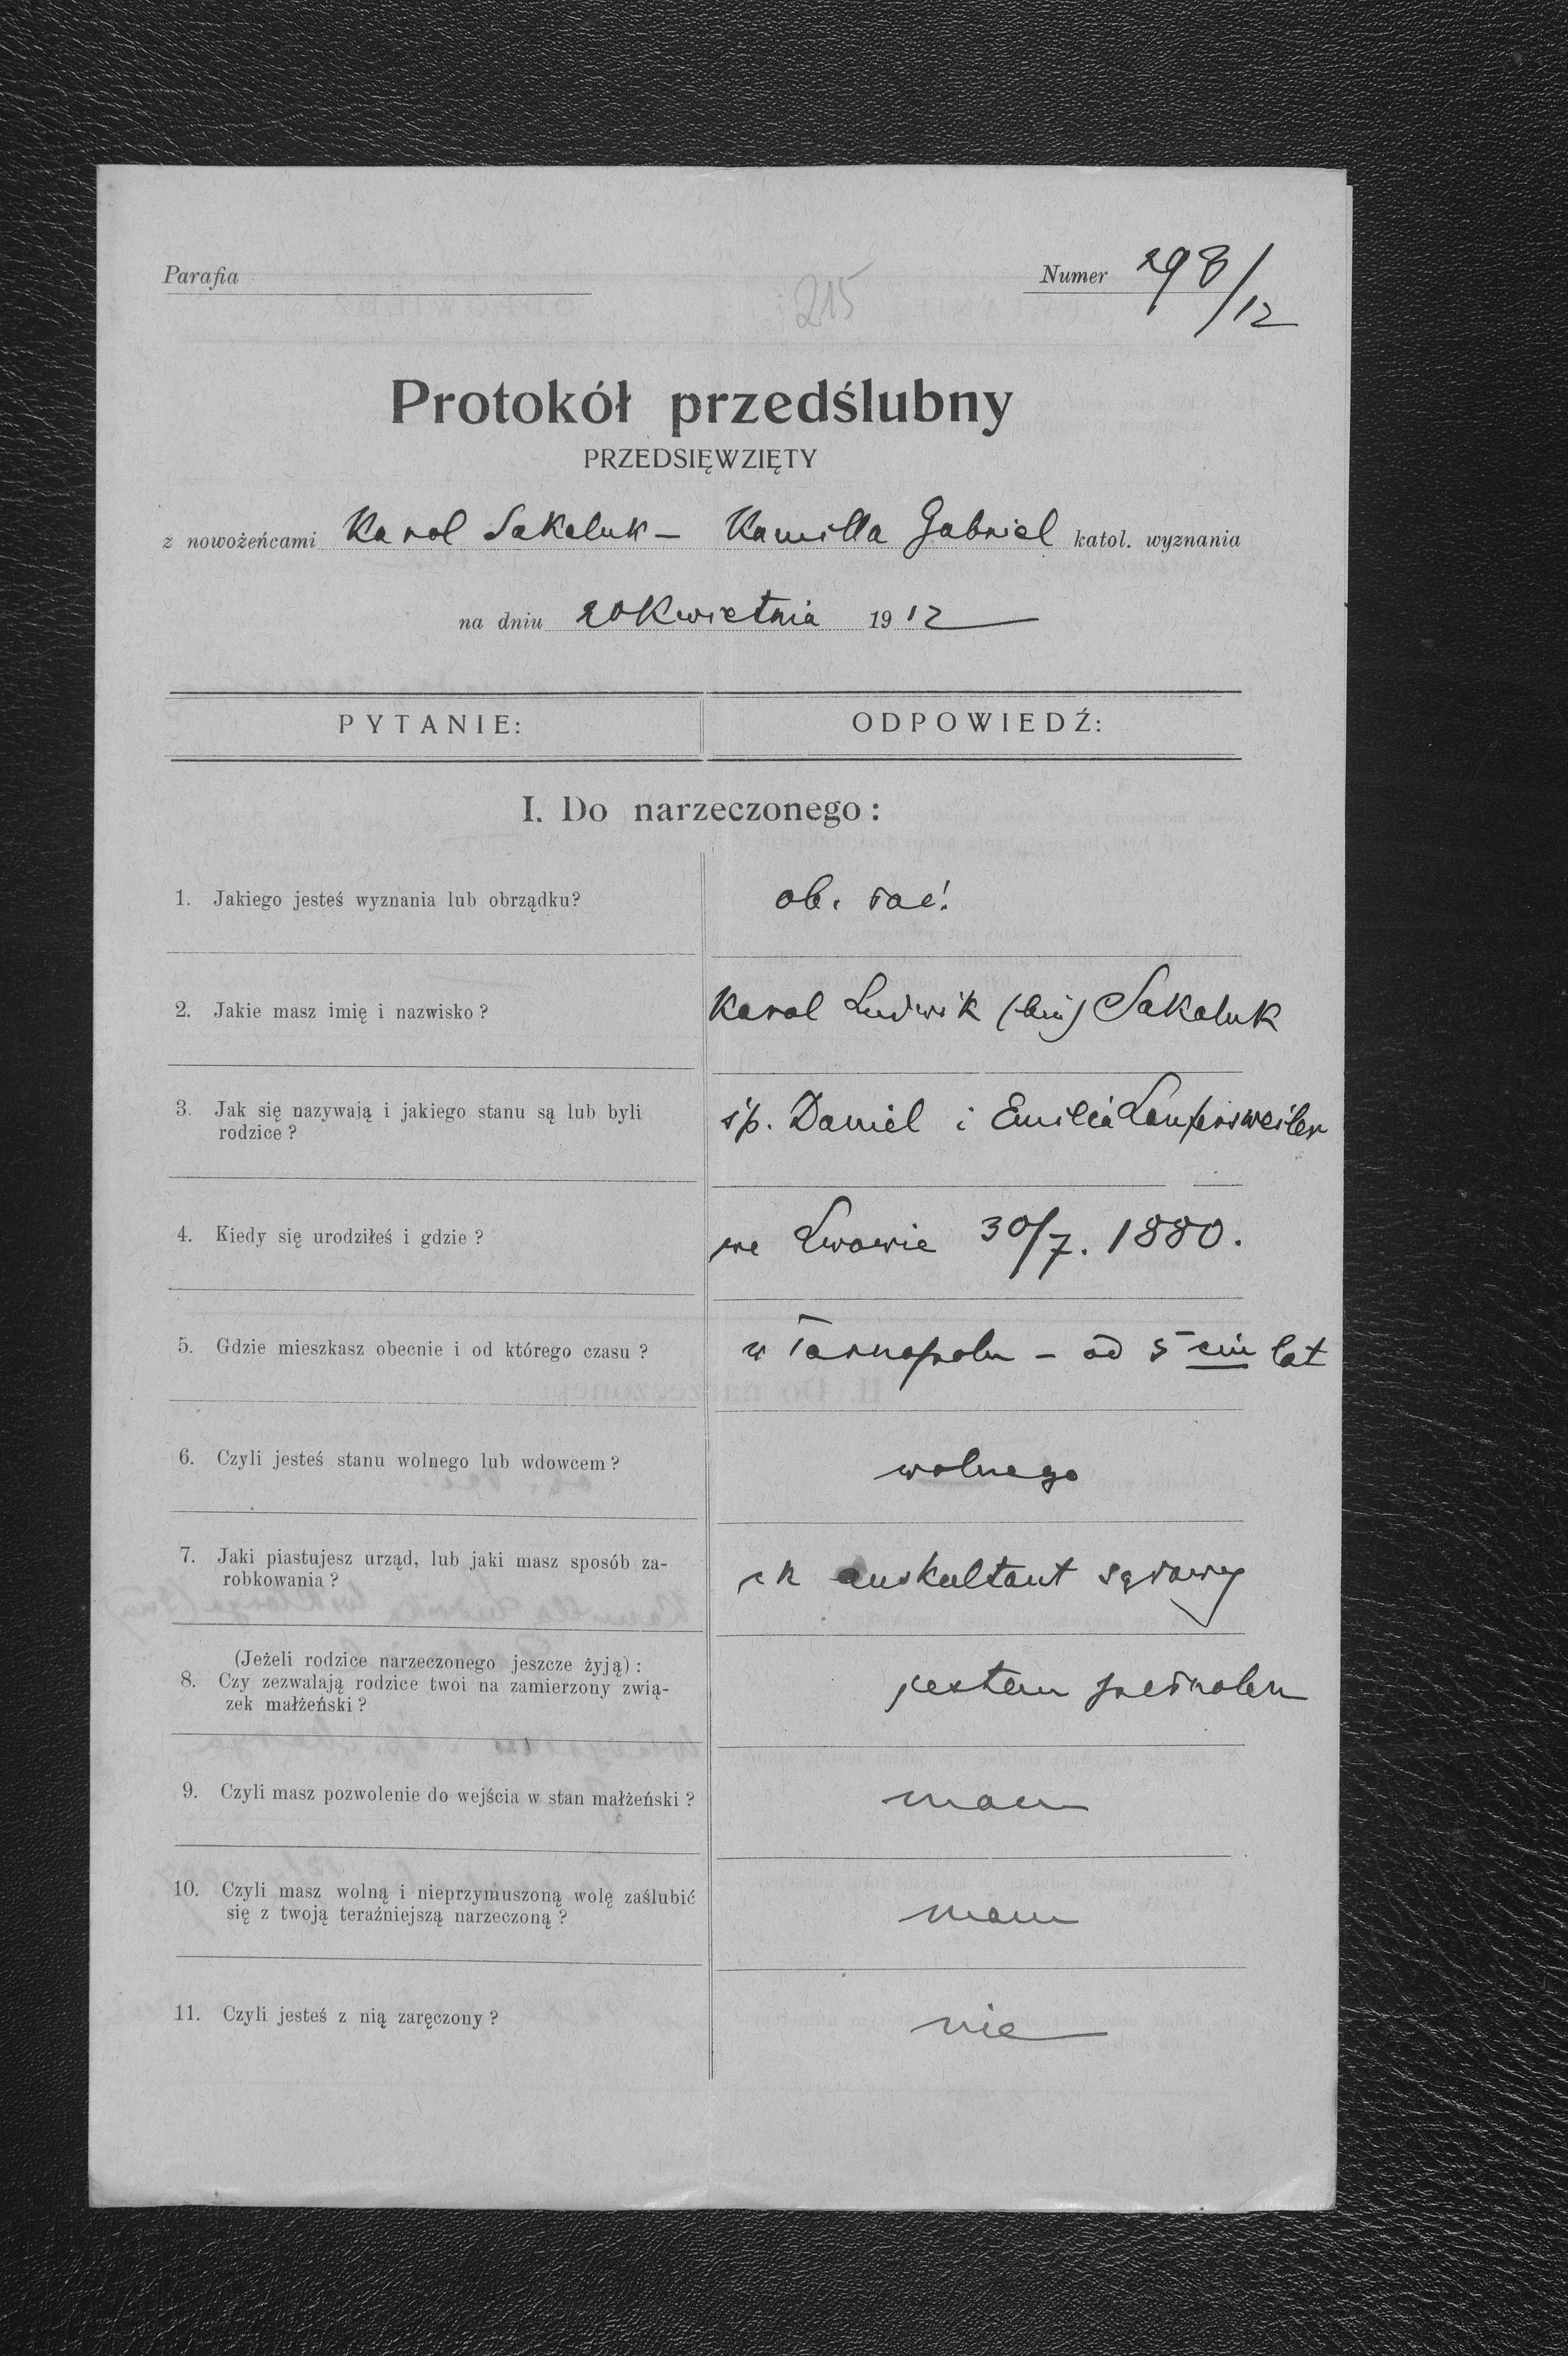 Parafia
Numer 298/12
215
Protokół przedślubny
PRZEDSIĘWZIĘTY
z nowożeńcami Karol Sakaluk – Kamilla Gabriel katol. wyznania
na dniu 20 Kwietnia 1912
PYTANIE: ODPOWIEDŹ:
I. Do narzeczonego:
1. Jakiego jesteś wyznania lub obrządku? ob. łać.
2. Jakie masz imię i nazwisko? Karol Ludwik Sakaluk
3. Jak się nazywają i jakiego stanu są lub byli
rodzice?
śp. Daniel i Emilia Laufersweiler
4. Kiedy się urodziłeś i gdzie? we Lwowie 30/7. 1880.
5. Gdzie mieszkasz obecnie i od którego czasu? w Tarnopolu – od 5 ciu lat
6. Czyli jesteś stanu wolnego lub wdowcem? wolnego
7. Jaki piastujesz urząd, lub jaki masz sposób za-
robkowania?
c k auskultant sądowy
(Jeżeli rodzice narzeczonego jeszcze żyją):
8. Czy zezwalają rodzice twoi na zamierzony zwią-
zek małżeński?
jestem pełnolen
9. Czyli masz pozwolenie do wejścia w stan małżeński? mam
10. Czyli masz wolną i nieprzymuszoną wolę zaślubić
się z twoją teraźniejszą narzeczoną?
mam
11. Czyli jesteś z nią zaręczony? nie